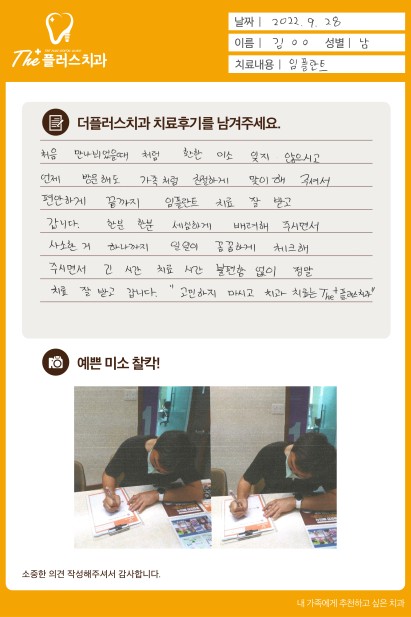 날짜 | 2022. 9. 28
이름 | 김 ㅇㅇ 성별 | 남
치료내용 | 임플란트
The+ 플러스치과
더플러스치과 치료후기를 남겨주세요.
처음 만나뵈었을때 처럼 환한 미소 잊지 않으시고
언제 방문해도 가족처럼 친절하게 맞이해 주셔서
편안하게 끝까지 임플란트 치료 잘 받고
갑니다. 한분 한분 세심하게 배려해 주시면서
사소한 거 하나까지 일일이 꼼꼼하게 체크해
주시면서 긴 시간 치료 시간 불편함 없이 정말
치료 잘 받고 갑니다. "고민하지 마시고 치과 치료는 The+플러스치과"
예쁜 미소 찰칵!
소중한 의견 작성해주셔서 감사합니다.
내 가족에게 추천하고 싶은 치과